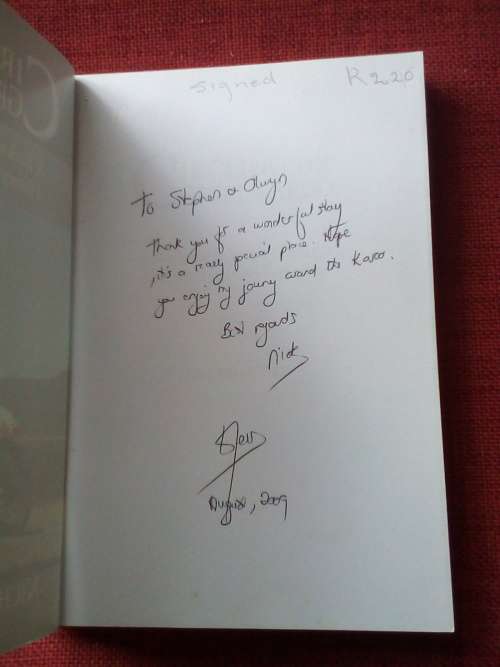 signed R220
CIR
GE
To Stephen & Olwyn
Thank you for a wonderful stay
, it's a really special place. Hope
you enjoy my journey around the Karoo.
Best regards
Nick
August, 2009